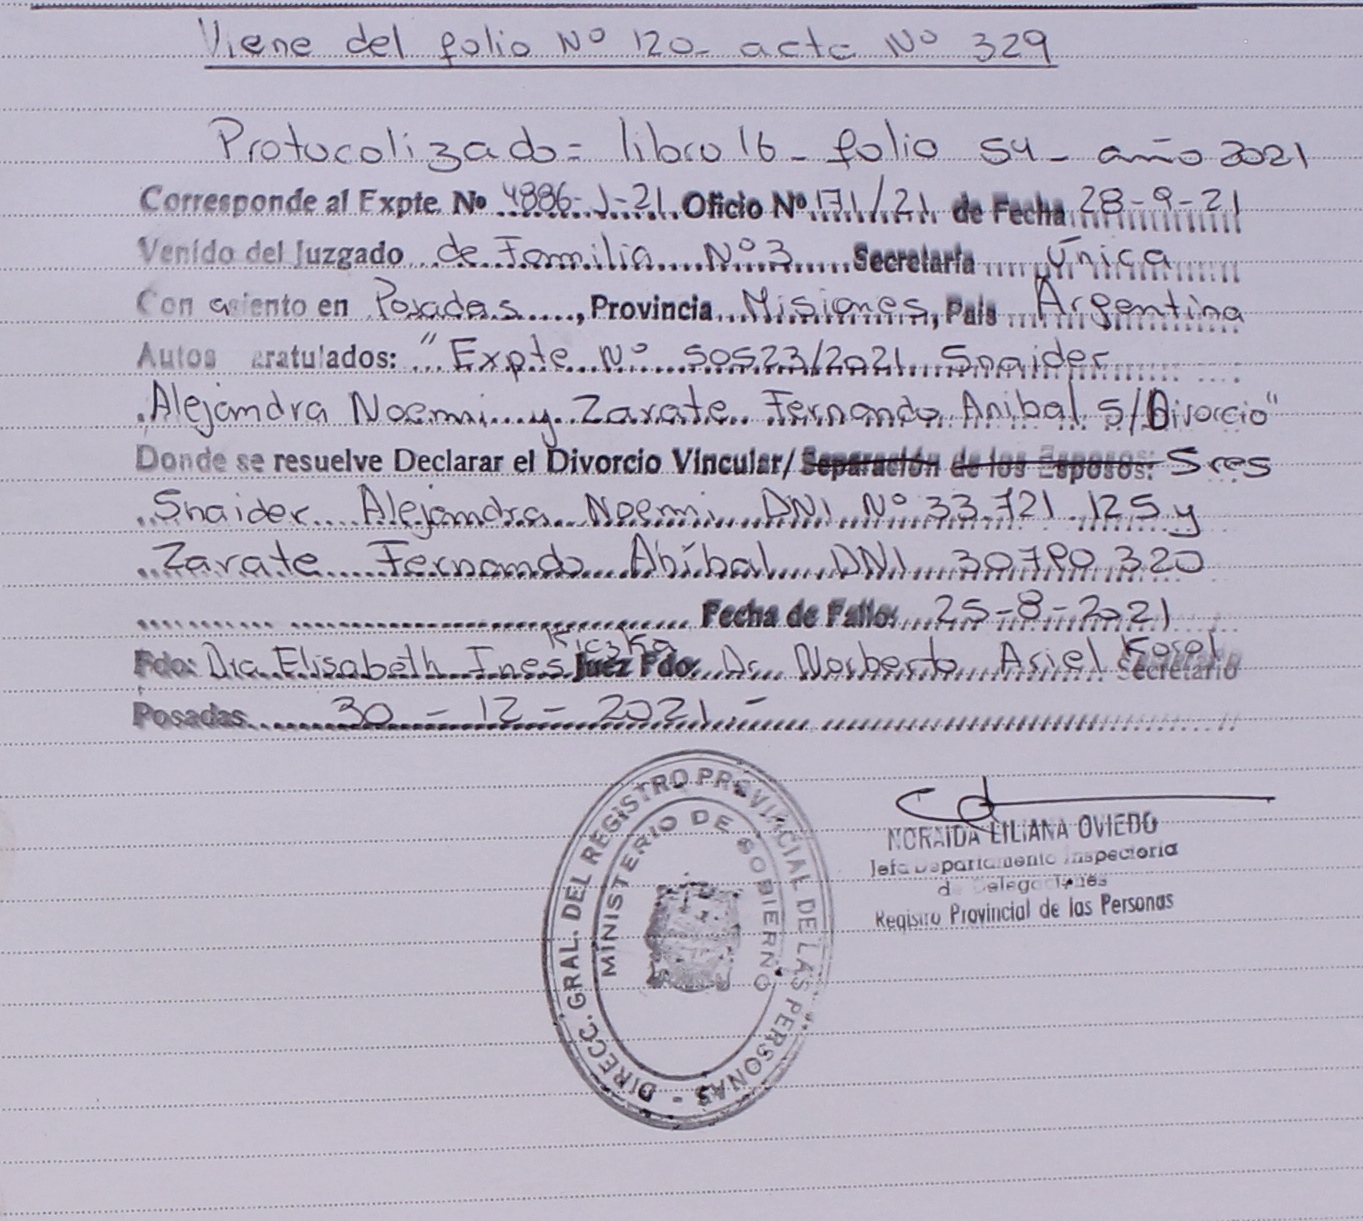 Viene del folio Nº 120- acta Nº 329
Protocolizado= libro 16 - folio 54 - año 2021
Corresponde al Expte. Nº 4886-J-21 Oficio Nº 171/21 de Fecha 28-9-21
Venido del Juzgado de Familia Nº 3 Secretaría Única
Con asiento en Posadas, Provincia Misiones, País Argentina
Autos caratulados: "Expte Nº 50523/2021 Snaider
Alejandra Noemi y Zarate Fernando Anibal S/Divorcio"
Donde se resuelve Declarar el Divorcio Vincular/ Separación de los Esposos: Sres
Snaider Alejandra Noemi DNI Nº 33.721.125 y
Zarate Fernando Aníbal DNI 30790320
Fecha de Fallo: 25-8-2021
Fdo: Dra Elisabeth Ines Kieska Juez Fdo: Dr. Norberto Ariel Korol Secretario
Posadas 30 - 12 - 2021.-
DIRECC. GRAL. DEL REGISTRO PROVINCIAL DE LAS PERSONAS -
MINISTERIO DE GOBIERNO
NORAIDA LILIANA OVIEDO
Jefa Departamento Inspectoria
de Delegaciones
Registro Provincial de las Personas